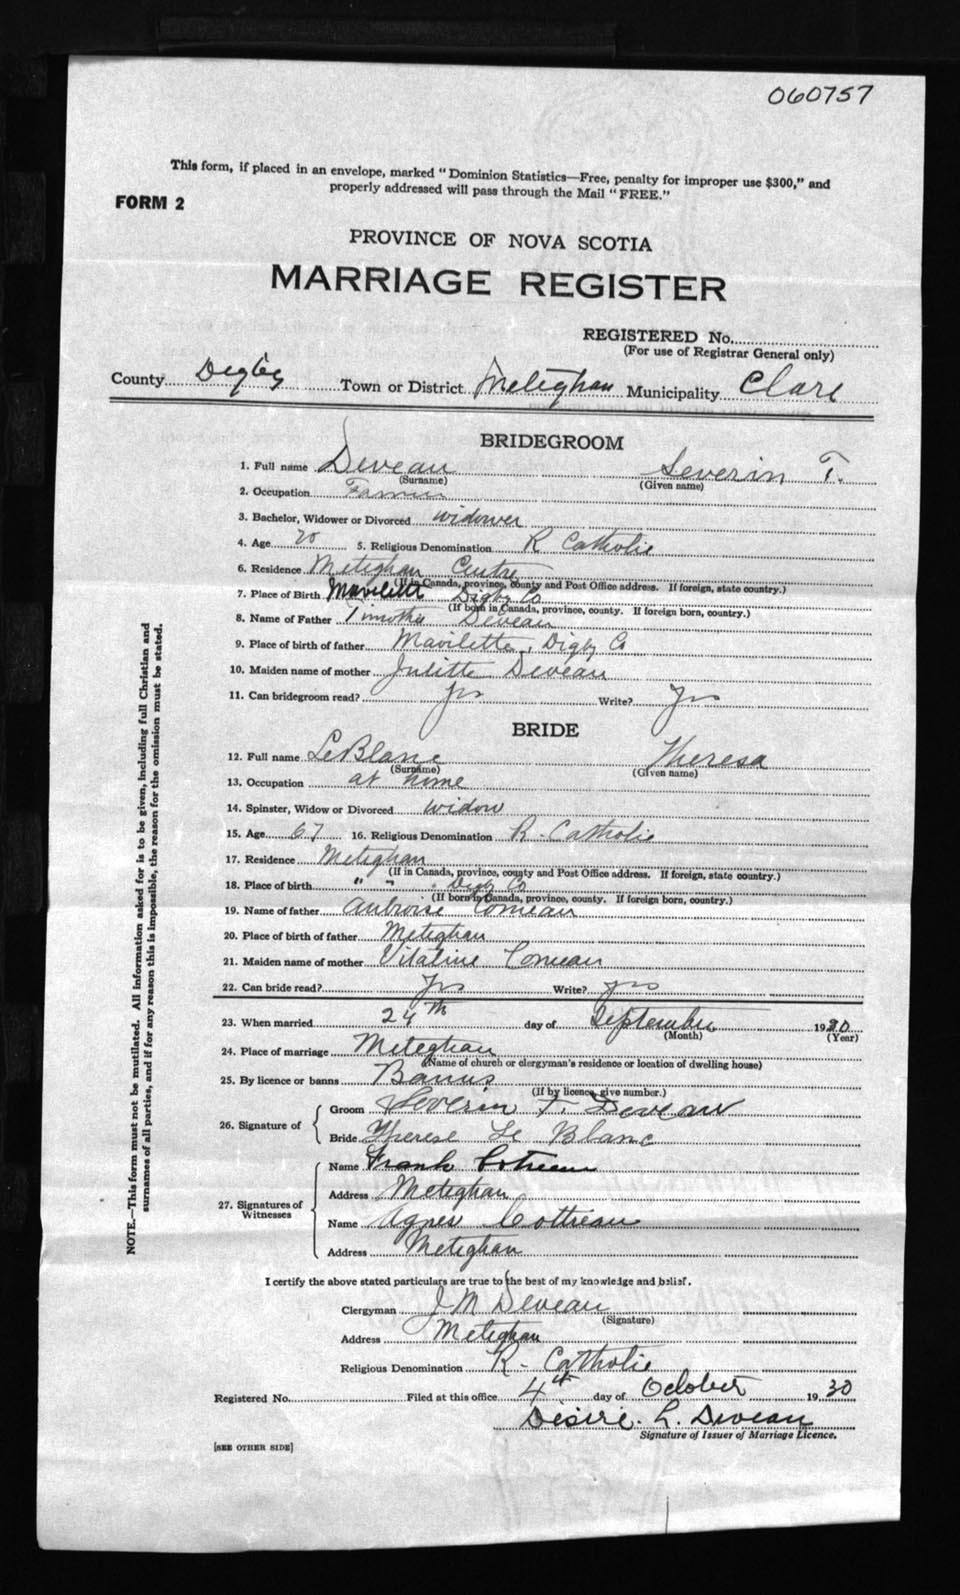 060757
This form, if placed in an envelope, marked "Dominion Statistics—Free, penalty for improper use $300," and
properly addressed will pass through the Mail "FREE."
FORM 2
PROVINCE OF NOVA SCOTIA
MARRIAGE REGISTER
REGISTERED No.
(For use of Registrar General only)
County Digby Town or District Meteghan Municipality Clare
BRIDEGROOM
1. Full name Deveau Severin T.
(Surname) (Given name)
2. Occupation Farmer
3. Bachelor, Widower or Divorced widower
4. Age 70 5. Religious Denomination R Catholic
6. Residence Meteghan Centre
(If in Canada, province, county and Post Office address. If foreign, state country.)
7. Place of Birth Mavilette Digby Co
(If born in Canada, province, county. If foreign born, country.)
8. Name of Father Timothe Deveau
9. Place of birth of father Mavilette, Digby Co
10. Maiden name of mother Julitte Deveau
11. Can bridegroom read? yes Write? yes
BRIDE
12. Full name LeBlanc Theresa
(Surname) (Given name)
13. Occupation at home
14. Spinster, Widow or Divorced widow
15. Age 67 16. Religious Denomination R. Catholic
17. Residence Meteghan
(If in Canada, province, county and Post Office address. If foreign, state country.)
18. Place of birth " " Digby Co
(If born in Canada, province, county. If foreign born, country.)
19. Name of father Ambroise Comeau
20. Place of birth of father Meteghan
21. Maiden name of mother Vitaline Comeau
22. Can bride read? yes Write? yes
23. When married 24th day of September 1930
(Month) (Year)
24. Place of marriage Meteghan
(Name of church or clergyman's residence or location of dwelling house)
25. By licence or banns Banns
(If by licence, give number.)
26. Signature of
Groom Severin T. Deveau
Bride Therese Le Blanc
27. Signatures of Witnesses
Name Frank
Address Meteghan
Name Agnes Cottreau
Address Meteghan
I certify the above stated particulars are true to the best of my knowledge and belief.
Clergyman J M Deveau
(Signature)
Address Meteghan
Religious Denomination R. Catholic
Registered No. Filed at this office 4th day of October 1930
Désiré. L. Deveau
Signature of Issuer of Marriage Licence.
[SEE OTHER SIDE]
NOTE.—This form must not be mutilated. All information asked for is to be given, including full Christian and
surnames of all parties, and if for any reason this is impossible, the reason for the omission must be stated.